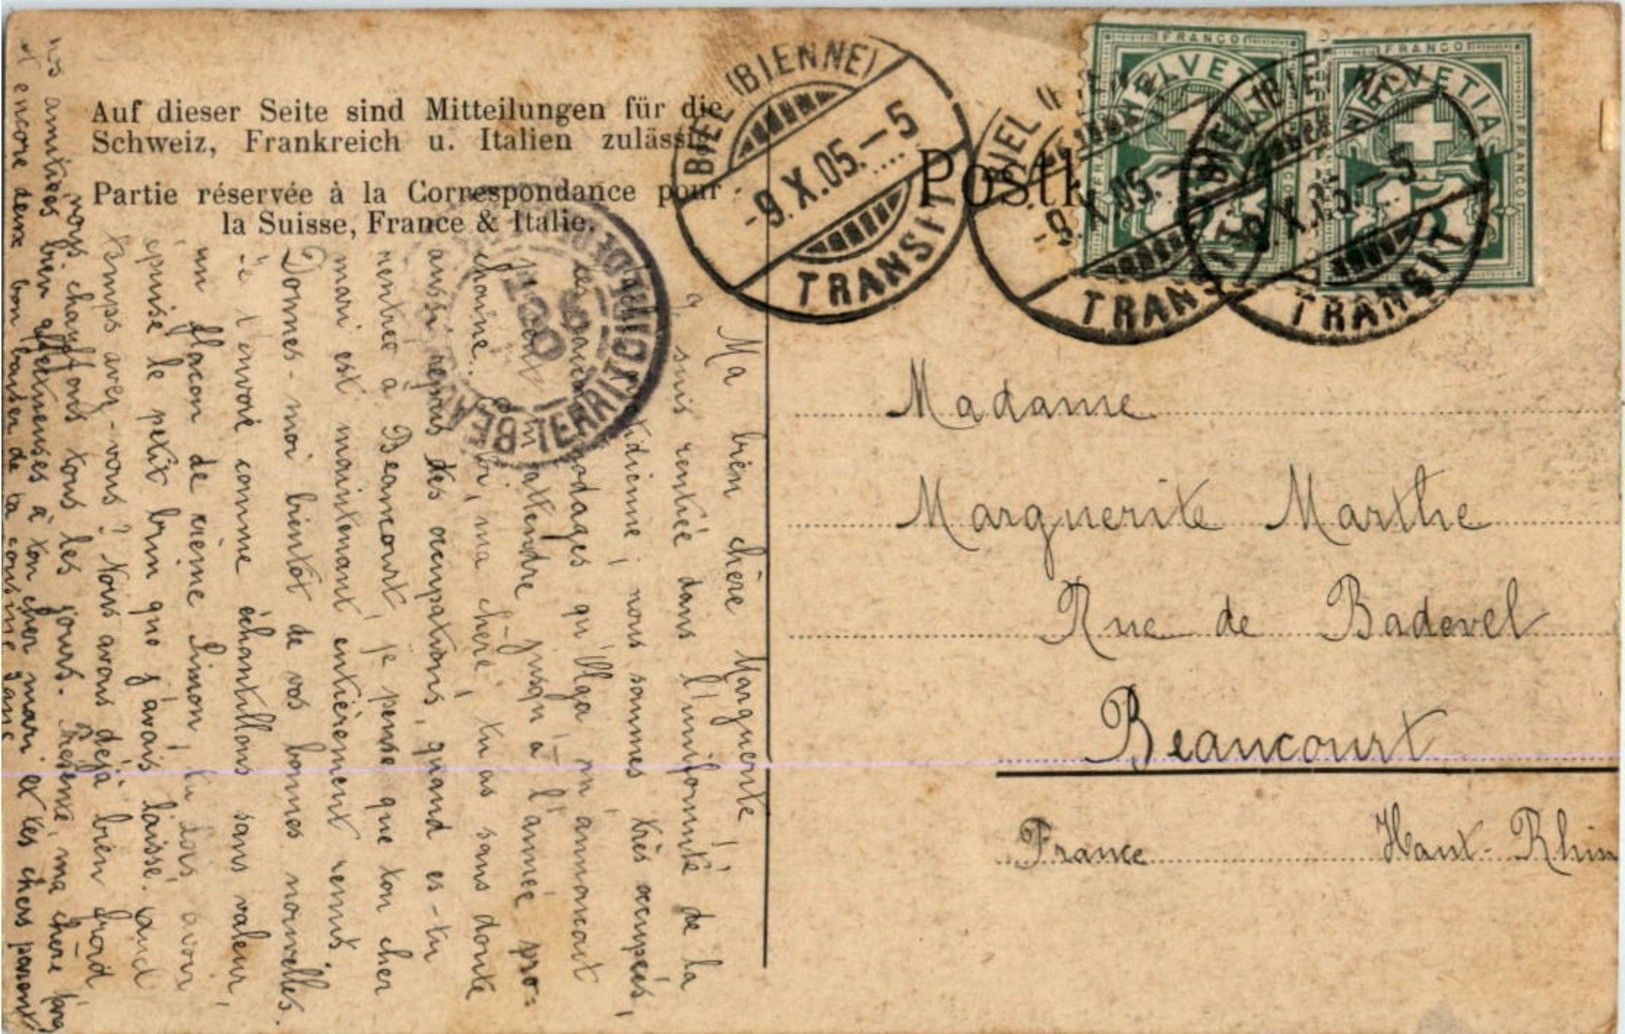 Auf dieser Seite sind Mitteilungen für die
Schweiz, Frankreich u. Italien zulässig.
Partie réservée à la Correspondance pour
la Suisse, France & Italie.
Postk
BIEL (BIENNE)
-9.X.05.-5
TRANSIT
BIEL (BIENNE)
-9.X.05.-5
TRANSIT
BIEL (BIENNE)
-9.X.05.-5
TRANSIT
FRANCO
HELVETIA
5
FRANCO
HELVETIA
5
BEAUCOURT
OCT
05
TERRIT. DE BELFORT
Madame
Marguerite Marthe
Rue de Badevel
Beaucourt
France Haut-Rhin
Ma bien chère Marguerite!
suis rentrée dans l'uniformité de la
nous sommes très occupées,
qu'Olga m'annonçait
attendre jusqu'à l'année pro=
chaine. Et toi, ma chère, tu as sans doute
aussi repris tes occupations, quand es-tu
rentrée à Beaucourt, je pense que ton cher
mari est maintenant entièrement remis.
Donnes-moi bientôt de vos bonnes nouvelles.
Je t'envoie comme échantillons sans valeur,
un flacon de crème Simon, tu dois avoir
épuisé le petit brun que j'avais laissé. Quel
temps avez-vous? Nous avons déjà bien froid
nous chauffons tous les jours. Reçois, ma chère
nos amitiés bien affectueuses à ton cher mari et tes chers parents
et encore deux bon baiser de ta cousine Jane